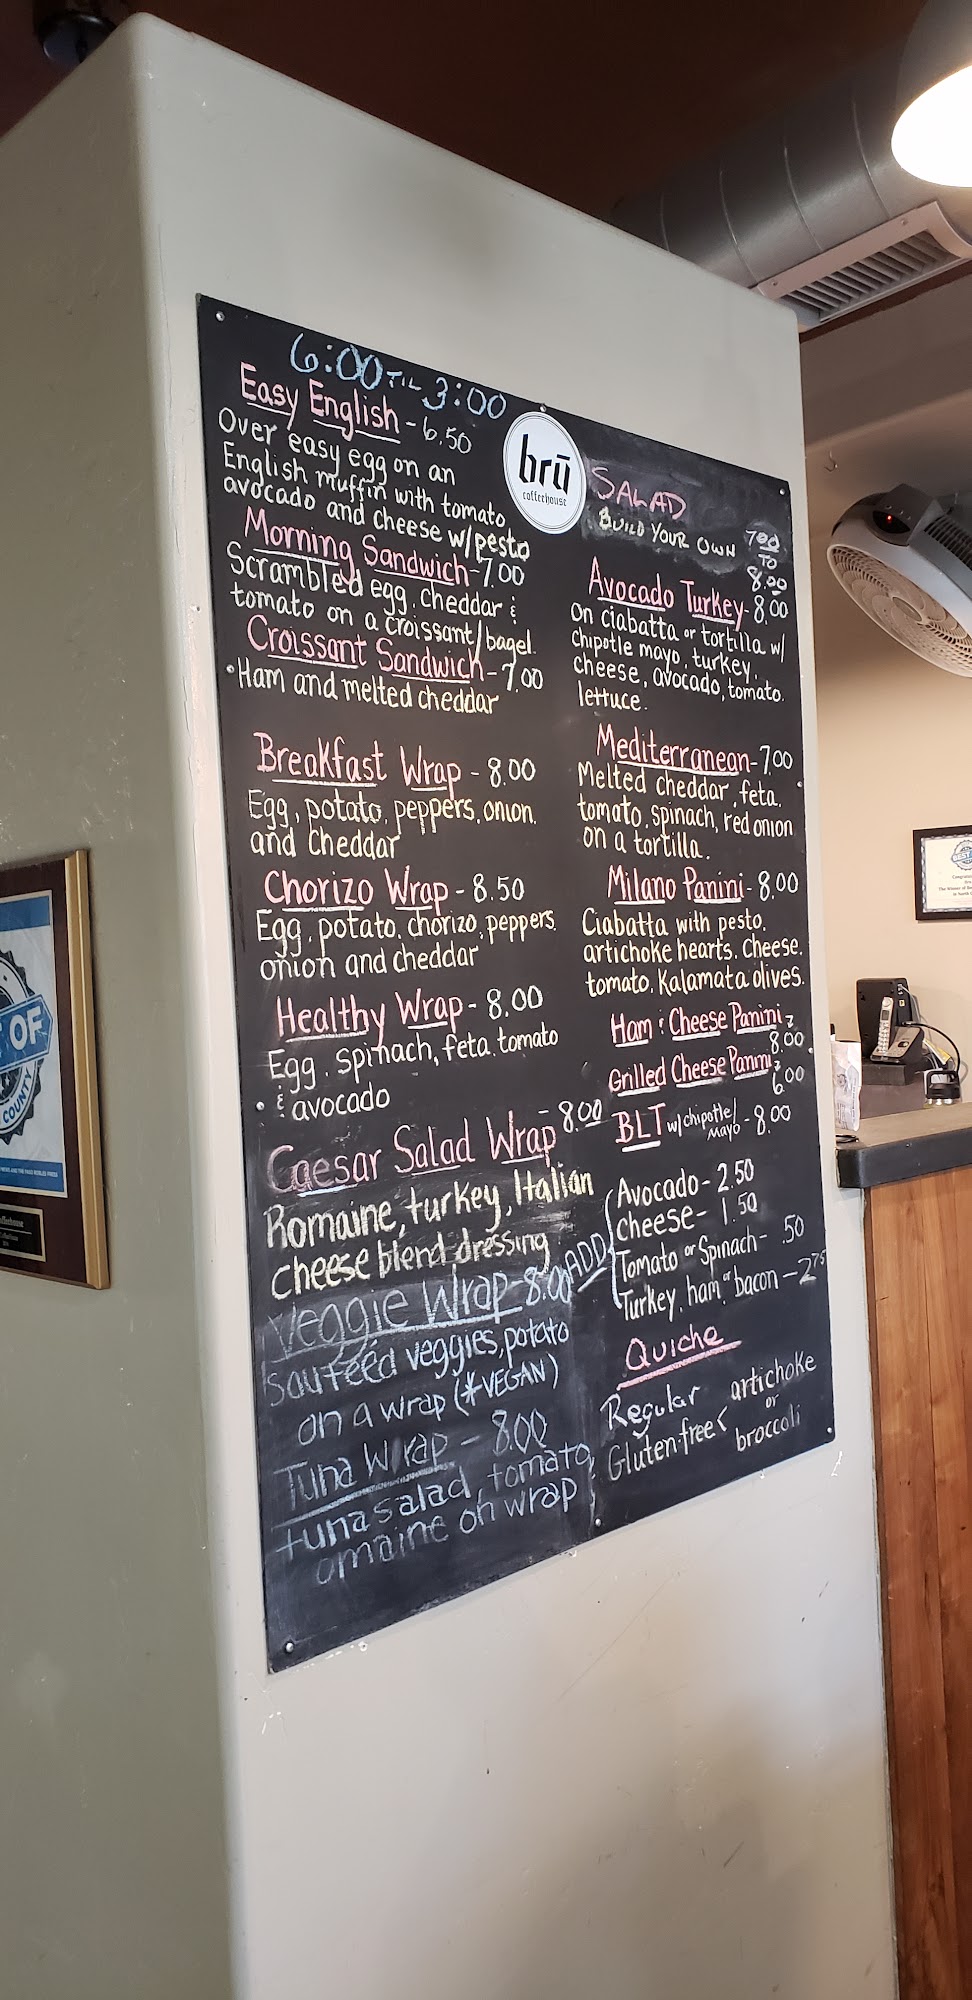 6:00 TIL 3:00
Easy English - 6.50
Over easy egg on an
English muffin with tomato,
avocado and cheese w/pesto
Morning Sandwich - 7.00
Scrambled egg, cheddar &
tomato on a croissant/bagel.
Croissant Sandwich - 7.00
• Ham and melted cheddar
Breakfast Wrap - 8.00
Egg, potato, peppers, onion,
and cheddar
Chorizo Wrap - 8.50
Egg, potato, chorizo, peppers,
onion and cheddar
Healthy Wrap - 8.00
Egg, spinach, feta, tomato
& avocado
Caesar Salad Wrap - 8.00
Romaine, turkey, Italian
cheese blend, dressing
Veggie Wrap - 8.00
sautéed veggies, potato
on a wrap (*VEGAN)
Tuna Wrap - 8.00
tuna salad, tomato,
omaine on wrap
brū
coffeehouse
SALAD
BUILD YOUR OWN 7.00
TO
8.00
Avocado Turkey - 8.00
On ciabatta or tortilla w/
chipotle mayo, turkey,
cheese, avocado, tomato,
lettuce.
Mediterranean - 7.00
Melted cheddar, feta,
tomato, spinach, red onion
on a tortilla.
Milano Panini - 8.00
Ciabatta with pesto,
artichoke hearts, cheese,
tomato, Kalamata olives.
Ham & Cheese Panini -
8.00
Grilled Cheese Panini -
6.00
BLT w/chipotle/
mayo - 8.00
ADD
Avocado - 2.50
cheese - 1.50
Tomato or Spinach - .50
Turkey, ham, or bacon - 2.75
Quiche
Regular
Gluten-free < artichoke
or
broccoli
OF
COUNTY